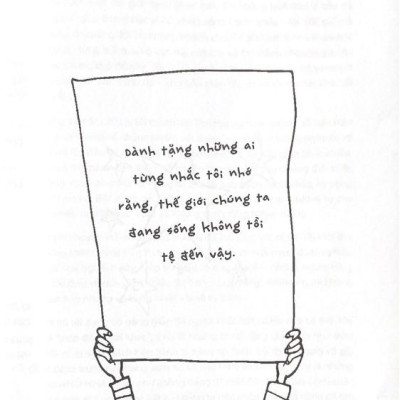 Dành tặng những ai
từng nhắc tôi nhớ
rằng, thế giới chúng ta
đang sống không tồi
tệ đến vậy.